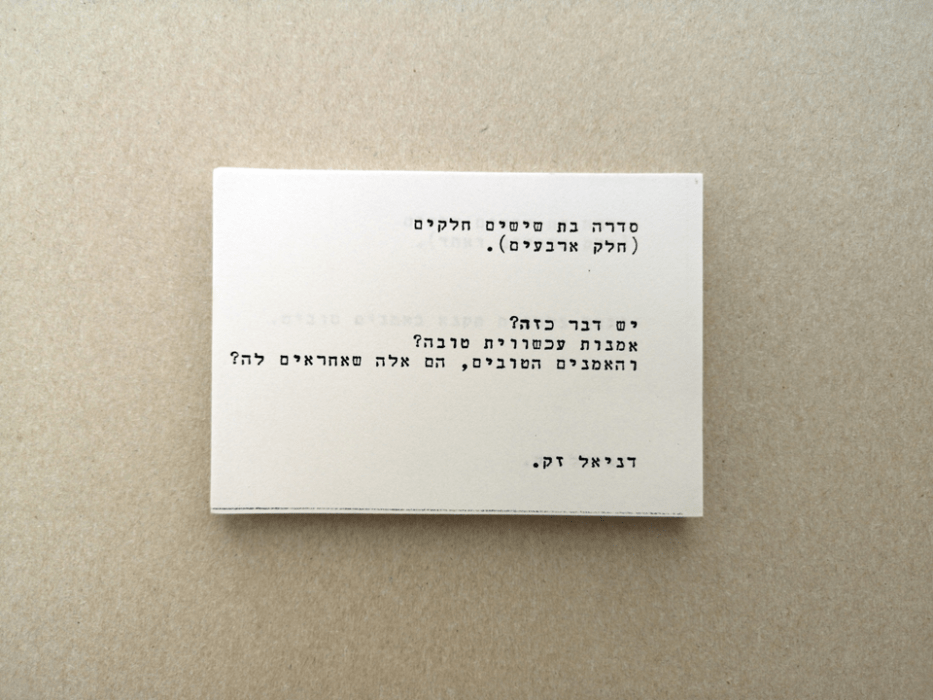 סדרה בת שישים חלקים
(חלק ארבעים).
יש דבר כזה?
אמנות עכשווית טובה?
והאמנים הטובים, הם אלה שאחראים לה?
דניאל זק.